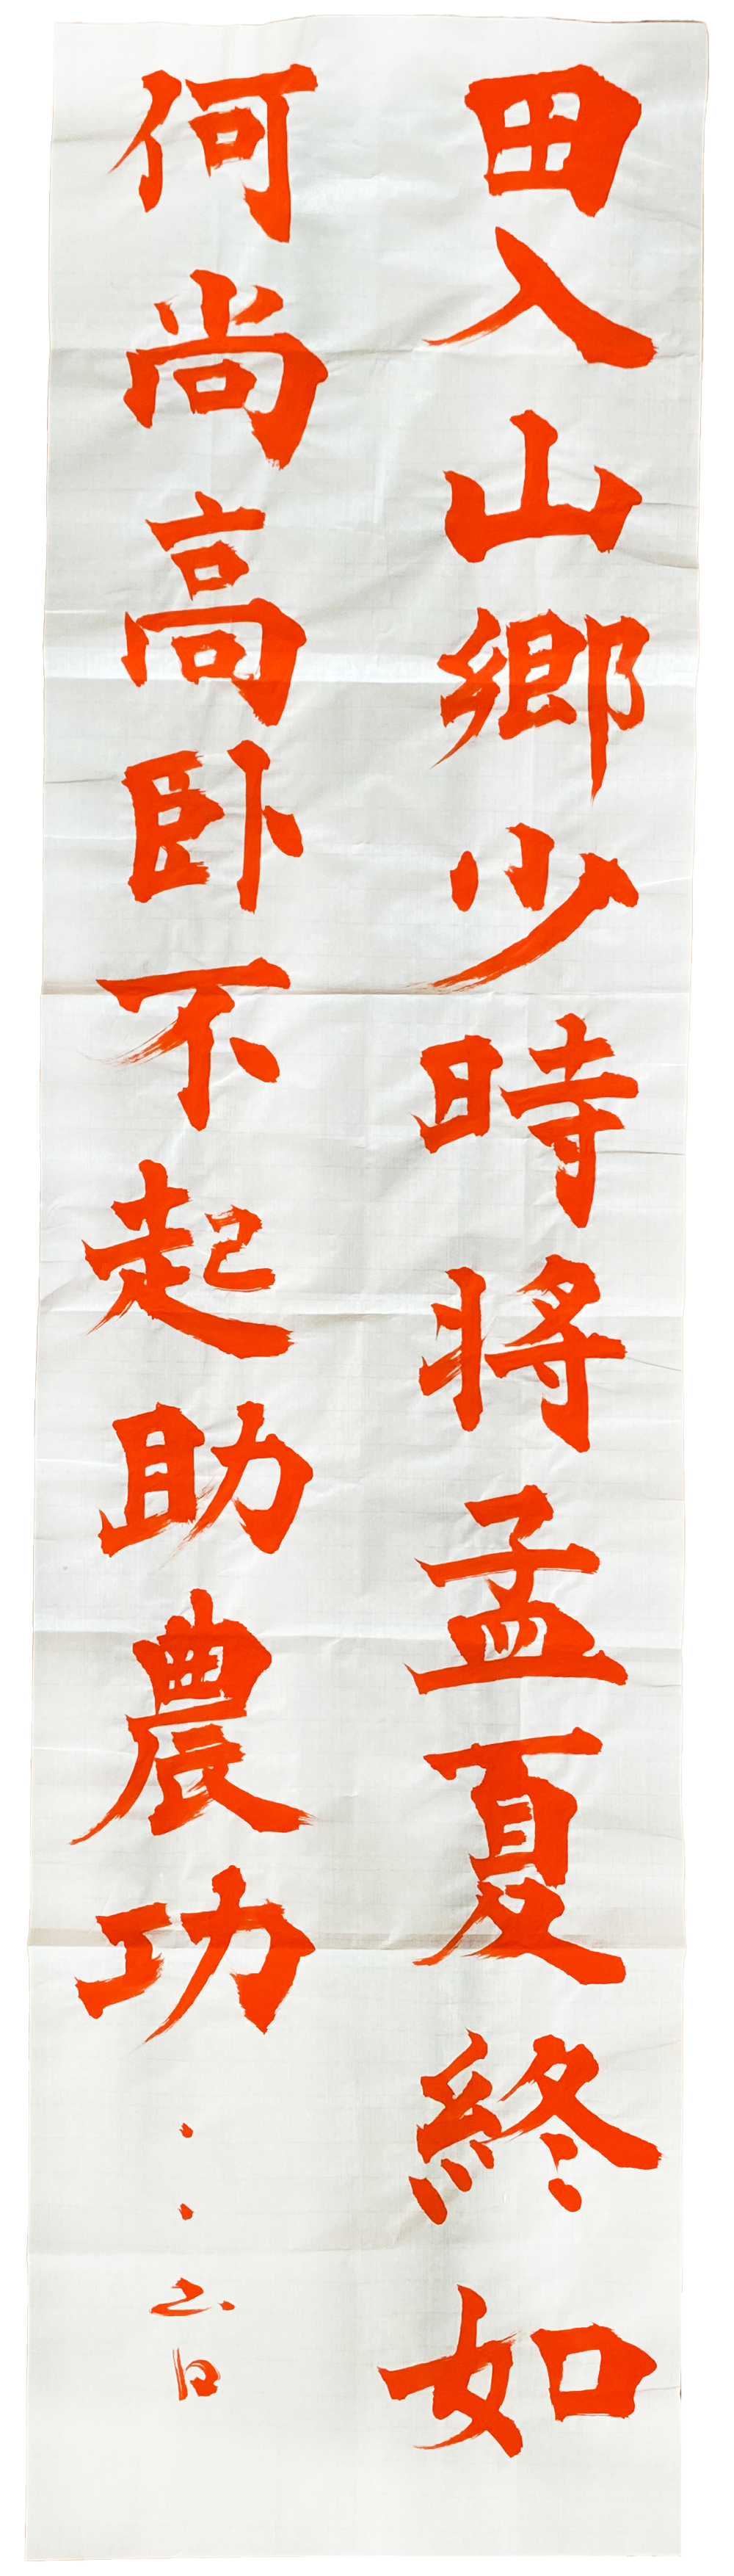 田入山鄉少時將孟夏終如
何尚高卧不起助農功